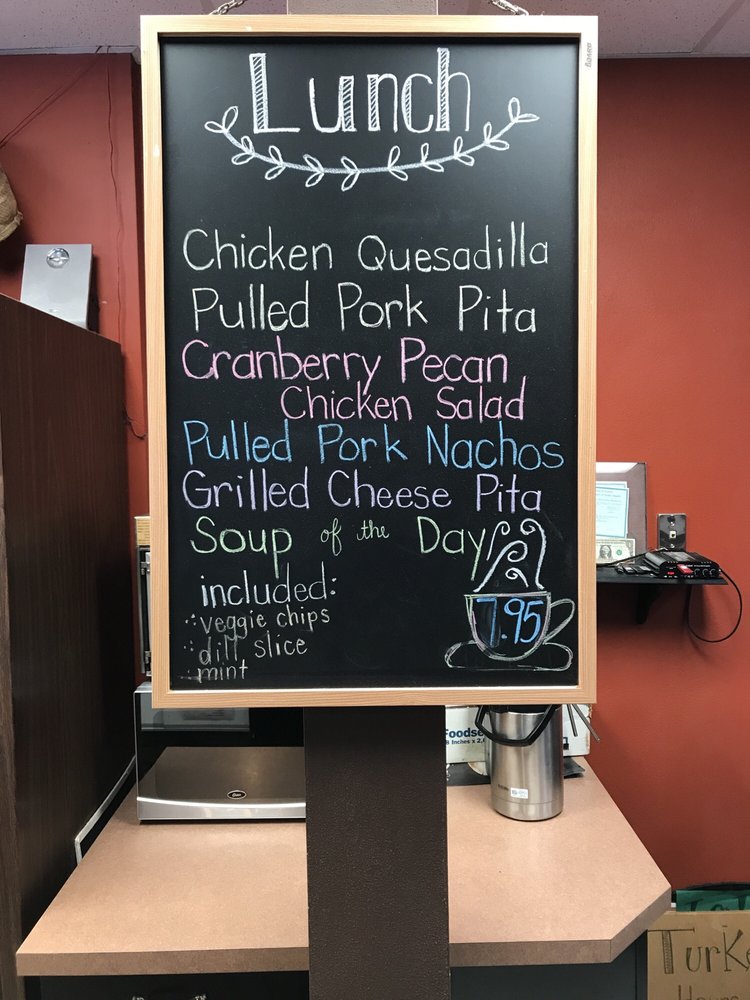 Lunch
Chicken Quesadilla
Pulled Pork Pita
Cranberry Pecan
Chicken Salad
Pulled Pork Nachos
Grilled Cheese Pita
Soup of the Day
included:
veggie chips
dill slice
mint
7.95
Foodse